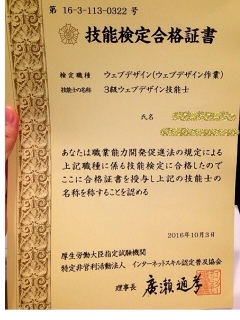 第 16-3-113-0322 号
技能検定合格証書
検定職種 ウェブデザイン(ウェブデザイン作業)
技能士の名称 3級ウェブデザイン技能士
氏名
あなたは職業能力開発促進法の規定による
上記職種に係る技能検定に合格したので
ここに合格証書を授与し上記の技能士の
名称を称することを認める
2016年10月3日
厚生労働大臣指定試験機関
特定非営利活動法人 インターネットスキル認定普及協会
理事長 廣瀬通孝